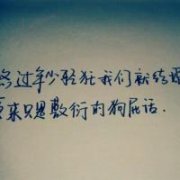 过年少轻狂我们就结婚
原来只是敷衍的狗屁话.